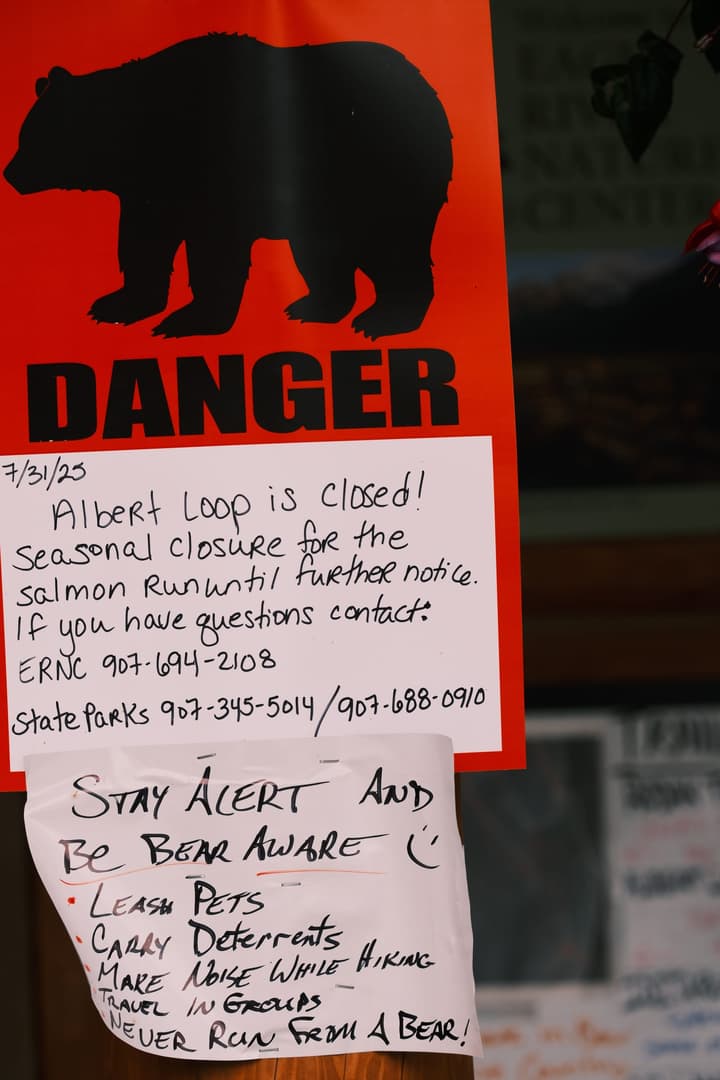 DANGER
7/31/25
Albert Loop is closed!
Seasonal closure for the
salmon Run until further notice.
If you have questions contact:
ERNC 907-694-2108
State Parks 907-345-5014/907-688-0910
STAY ALERT AND
BE BEAR AWARE
• LEASH PETS
• CARRY DeterrentS
• MAKE NOISE WHILE HIKING
• TRAVEL IN GROUPS
• NEVER RUN FROM A BEAR!
NATURE
CENTER